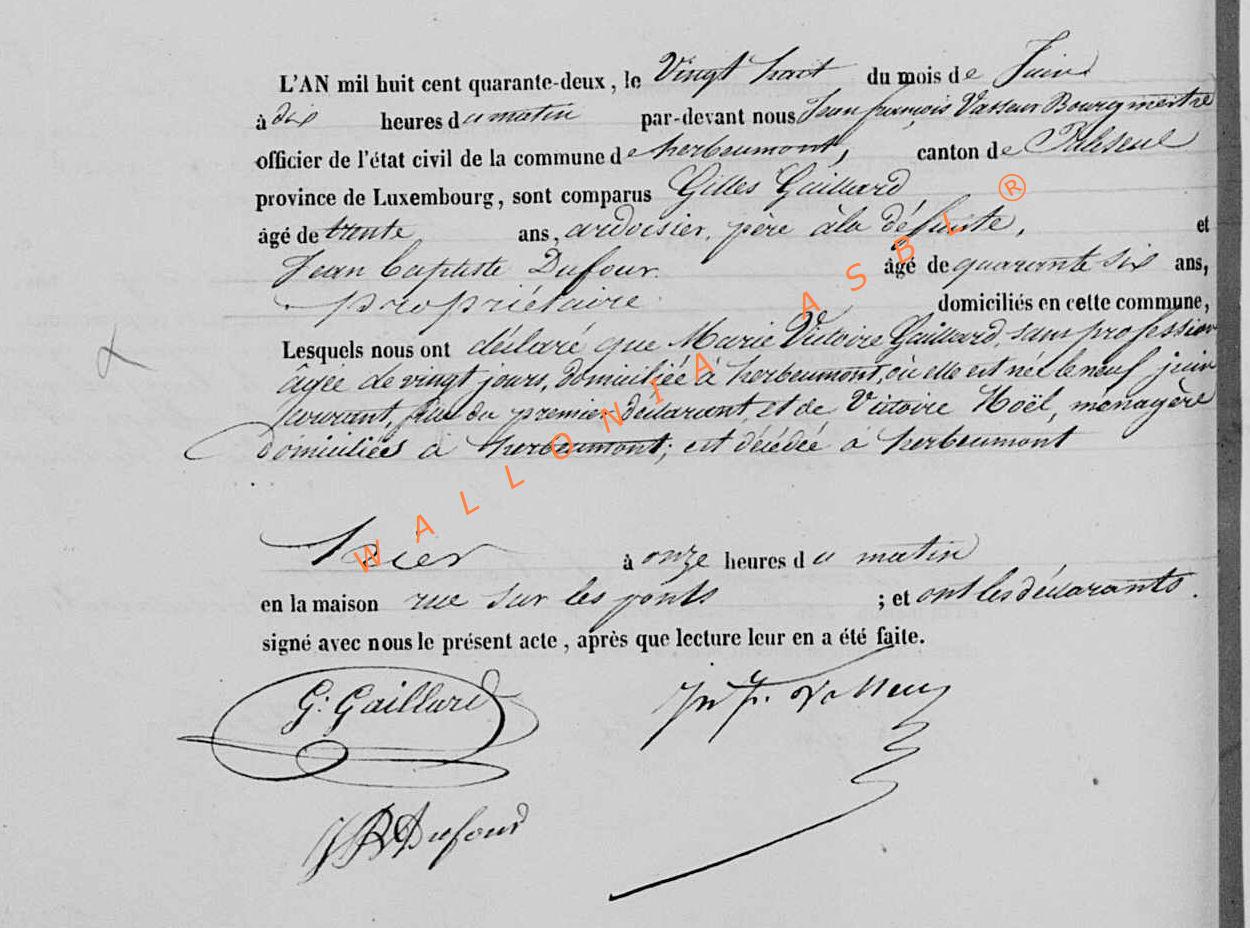 L'AN mil huit cent quarante-deux, le Vingt huit du mois de Juin
à dix heures du matin par-devant nous Jean françois Vasseur Bourgmestre
officier de l'état civil de la commune de herbeumont, canton de Paliseul
province de Luxembourg, sont comparus Gilles Gaillard
âgé de trente ans, ardoisier, père à la défunte, et
Jean Baptiste Dufour âgé de quarante six ans,
propriétaire domiciliés en cette commune,
Lesquels nous ont déclaré que Marie Victoire Gaillard, sans profession
âgée de vingt jours, domiciliée à herbeumont, où elle est née le neuf juin
courant, fille du premier déclarant et de Victoire Noël, ménagère
domiciliés à herbeumont; est décédée à herbeumont
hier à onze heures du matin
en la maison rue sur les ponts ; et ont les déclarants.
signé avec nous le présent acte, après que lecture leur en a été faite.
G. Gaillard
JB Dufour
WALLONIA ASBL ®